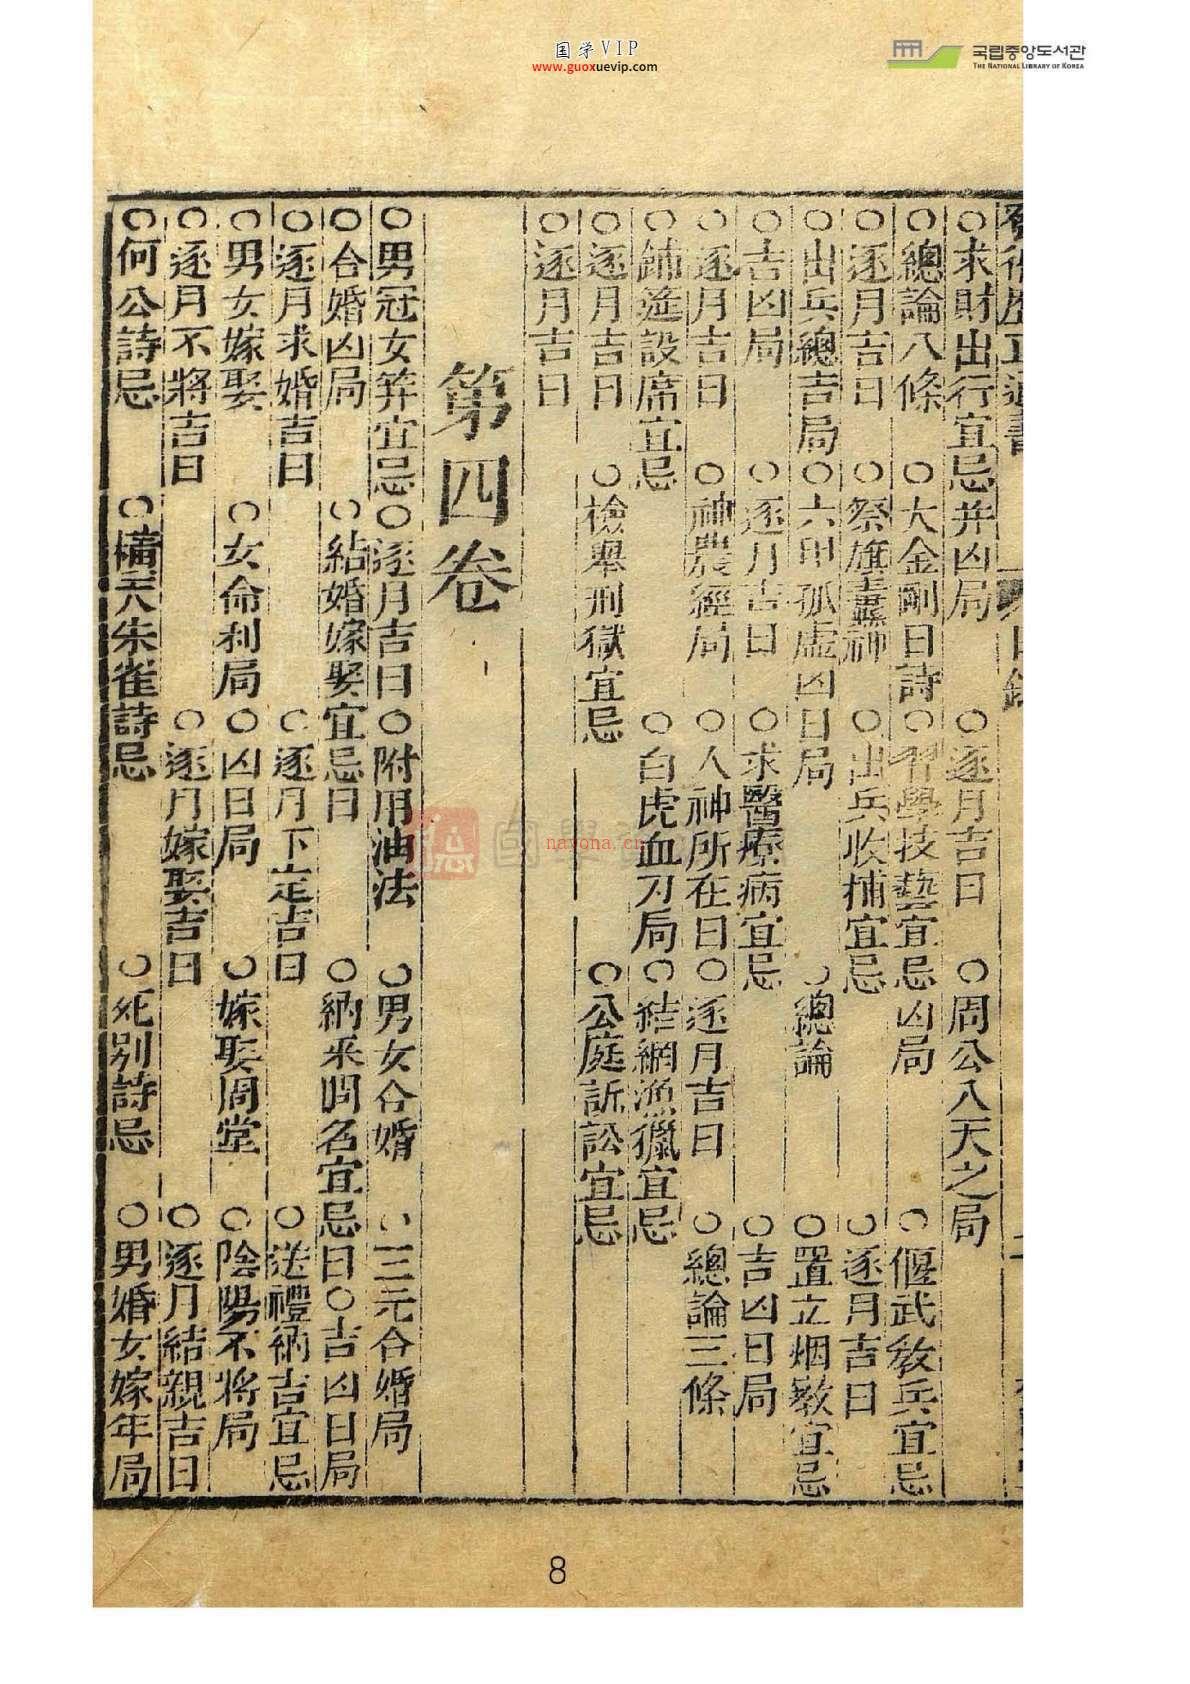 国学VIP
www.guoxuevip.com
국립중앙도서관
THE NATIONAL LIBRARY OF KOREA
○求財出行宜忌并凶局 ○逐月吉日 ○周公八天之局
○總論八條 ○大金剛日詩 ○習學技藝宜忌凶局 ○偃武教兵宜忌
○逐月吉日 ○祭旗纛神 ○出兵收捕宜忌 ○逐月吉日
○出兵總吉局 ○六甲孤虛凶日局 ○總論 ○置立烟墩宜忌
○吉凶局 ○逐月吉日 ○求醫療病宜忌 ○吉凶日局
○逐月吉日 ○神農經局 ○人神所在日 ○逐月吉日 ○總論三條
○鋪筵設席宜忌 ○白虎血刃局 ○結網漁獵宜忌
○逐月吉日 ○檢舉刑獄宜忌 ○公庭訴訟宜忌
○逐月吉日
第四卷
○男冠女笄宜忌 ○逐月吉日 ○附用油法 ○男女合婚 ○三元合婚局
○合婚凶局 ○結婚嫁娶宜忌日 ○納采問名宜忌日 ○吉凶日局
○逐月求婚吉日 ○逐月下定吉日 ○送禮納吉宜忌
○男女嫁娶 ○女命利局 ○凶日局 ○嫁娶周堂 ○陰陽不將局
○逐月不將吉日 ○逐月嫁娶吉日 ○逐月結親吉日
○何公詩忌 ○橫天朱雀詩忌 ○死別詩忌 ○男婚女嫁年局
nayona.cn
8